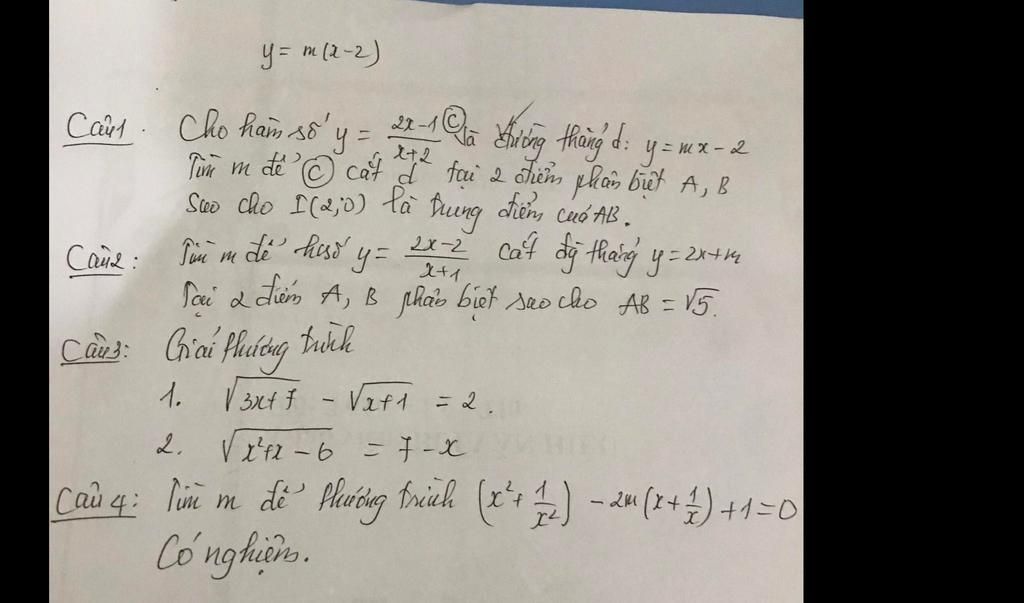 y = m(x-2)
Câu1. Cho hàm số y = \frac{2x-1}{x+2} (C) và đường thẳng d: y = mx - 2
Tìm m để (C) cắt d tại 2 điểm phân biệt A, B
sao cho I(2;0) là trung điểm của AB.
Câu2: Tìm m để hsố y = \frac{2x-2}{x+1} cắt đg thẳng y = 2x+m
Tại 2 điểm A, B phân biệt sao cho AB = √5.
Câu3: Giải phương trình
1. √(3x+7) - √(x+1) = 2.
2. √(x²+x-6) = 7-x
Câu 4: Tìm m để phương trình (x² + \frac{1}{x²}) - 2m(x + \frac{1}{x}) + 1 = 0
Có nghiệm.